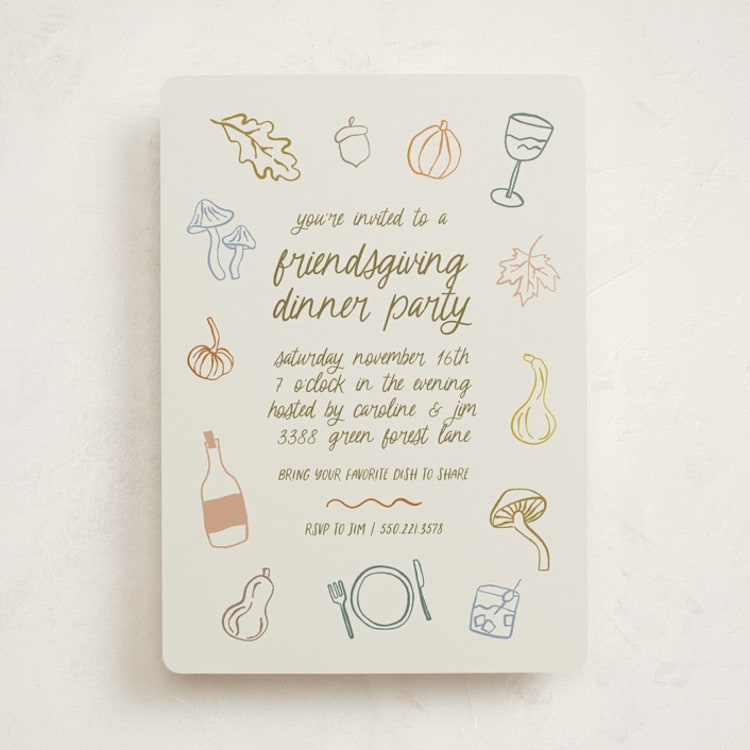 you're invited to a
friendsgiving
dinner party
saturday november 16th
7 o'clock in the evening
hosted by caroline & jim
3388 green forest lane
BRING YOUR FAVORITE DISH TO SHARE
RSVP TO JIM | 550.221.3578